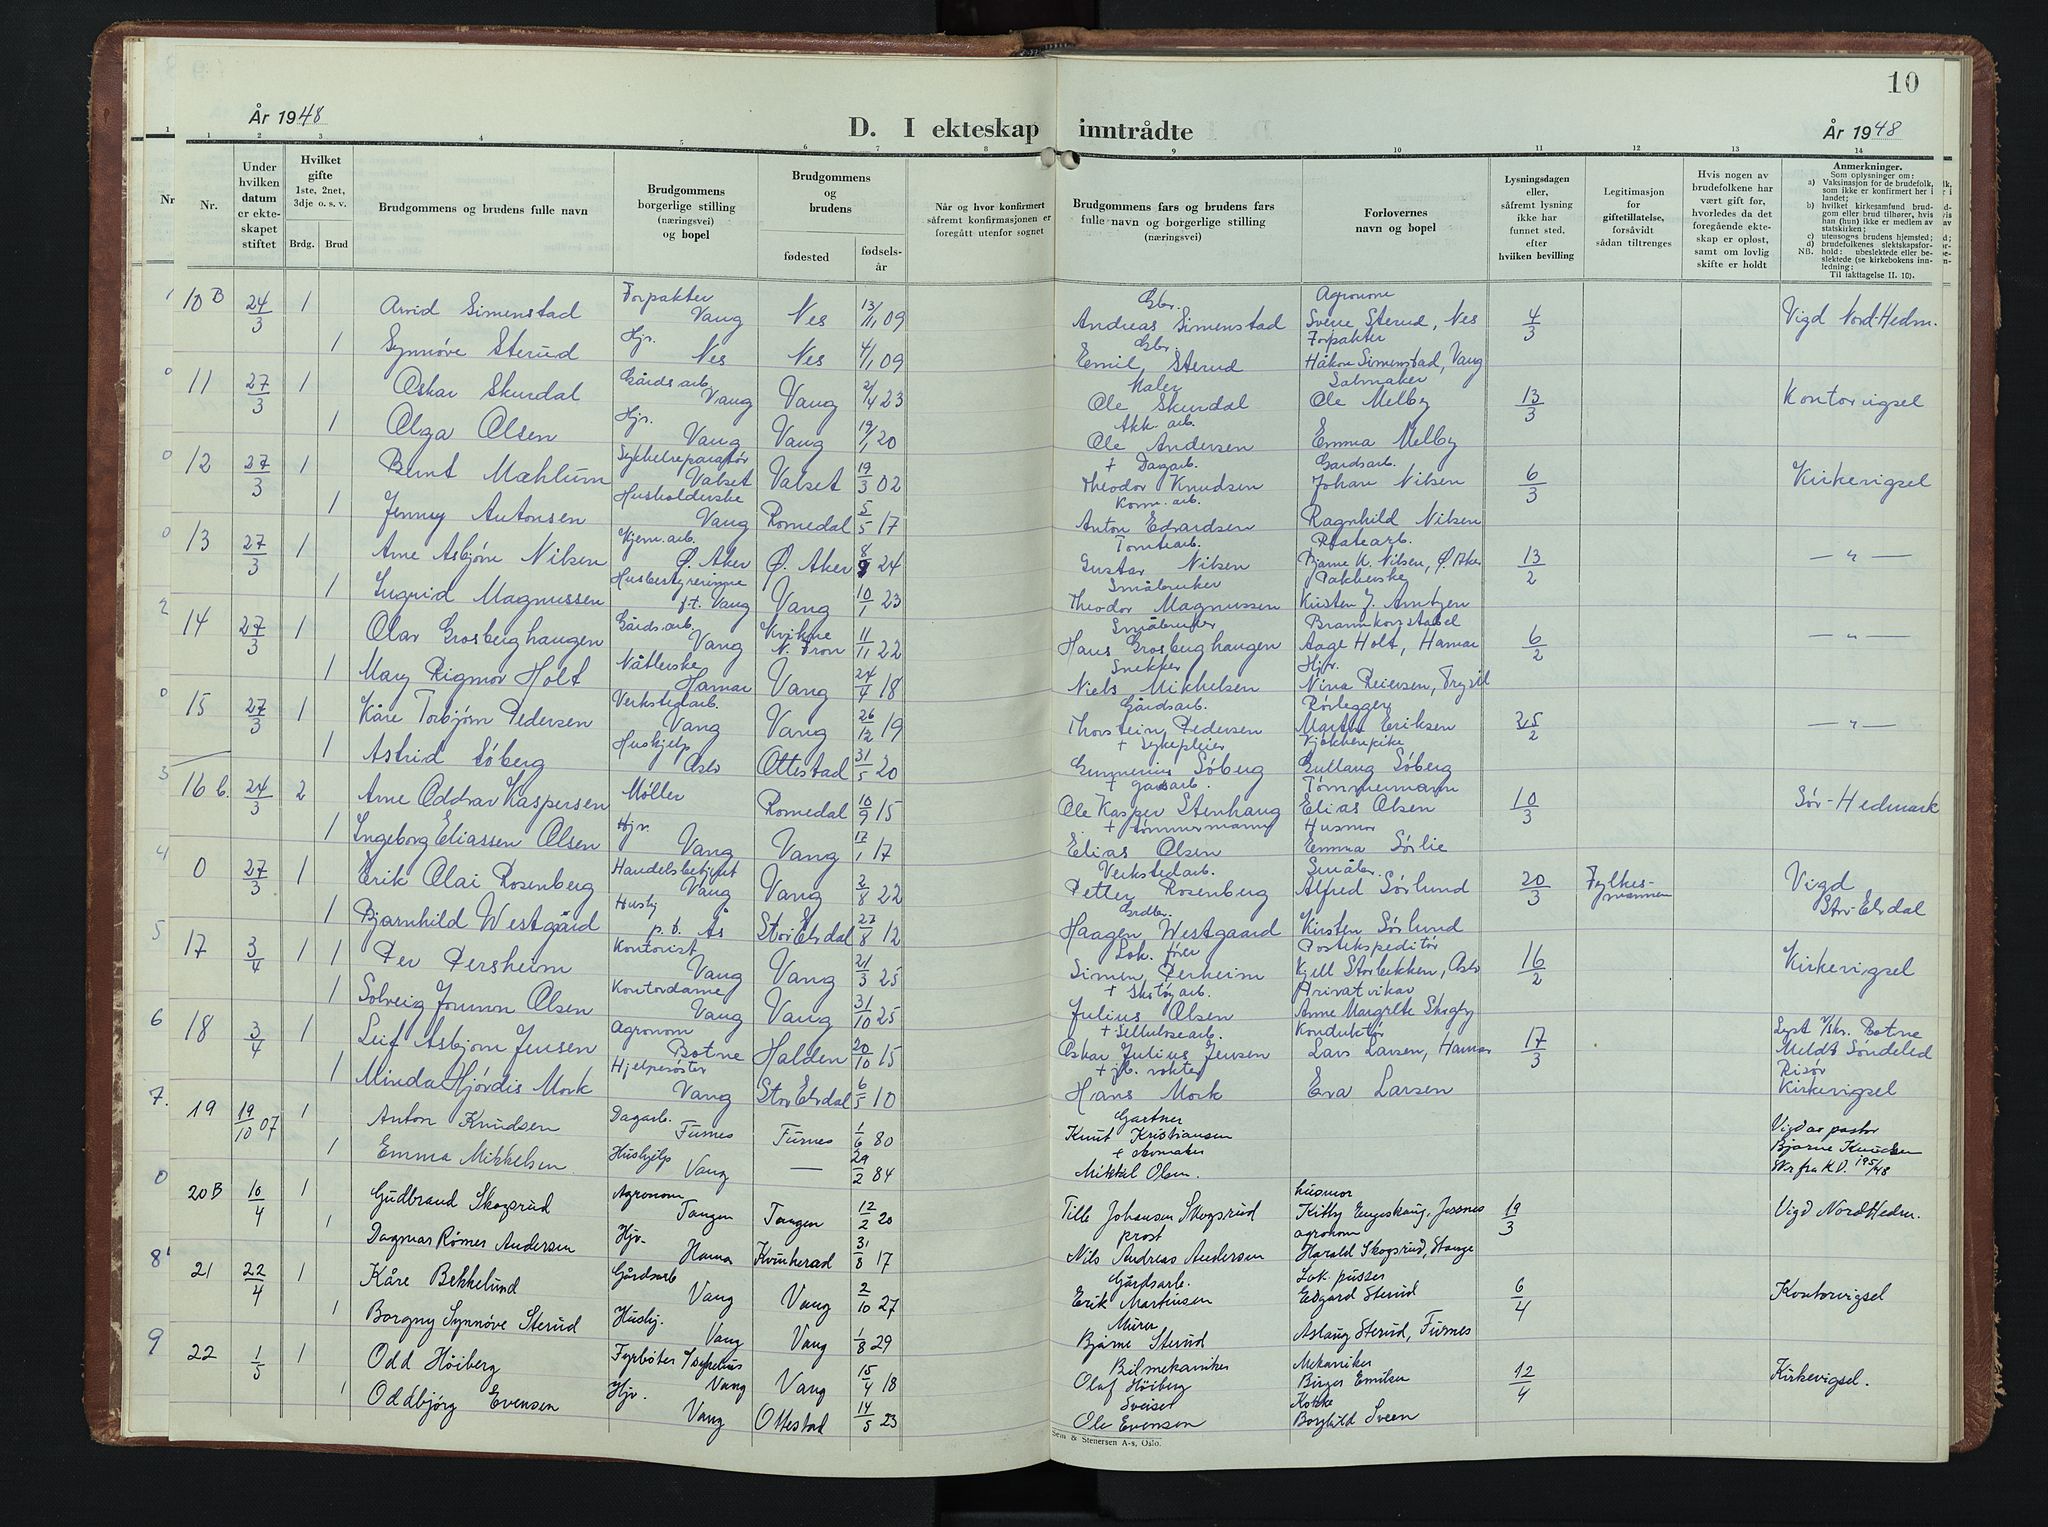 10
År 1948
D. I ekteskap inntrådte
År 1948
1 2 3 4 5 6 7 8 9 10 11 12 13 14
Nr.
Under hvilken datum er ekteskapet stiftet
Hvilket gifte 1ste, 2net, 3dje o. s. v.
Brdg. Brud
Brudgommens og brudens fulle navn
Brudgommens borgerlige stilling (næringsvei) og bopel
Brudgommens og brudens
fødested
fødselsår
Når og hvor konfirmert såfremt konfirmasjonen er foregått utenfor sognet
Brudgommens fars og brudens fars fulle navn og borgerlige stilling (næringsvei)
Forlovernes navn og bopel
Lysningsdagen eller, såfremt lysning ikke har funnet sted, efter hvilken bevilling
Legitimasjon for giftetillatelse, forsåvidt sådan tiltrenges
Hvis nogen av brudefolkene har vært gift før, hvorledes da det foregående ekteskap er opløst, samt om lovlig skifte er holdt
Anmerkninger.
Som oplysninger om:
a) Vaksinasjon for de brudefolk, som ikke er konfirmert her i landet;
b) hvilket kirkesamfund brudgom eller brud tilhører, hvis han (hun) ikke er medlem av statskirken;
c) utensogns brudens hjemsted;
d) brudefolkenes slektskapsforhold: ubeslektede eller beslektede (se kirkebokens innledning;
NB.
Til iakttagelse II. 10).
10 B 24/3 1 Arvid Simenstad Forpakter Vang Nes 13/11 09 Gbr. Andreas Simenstad Agronom Sverre Sterud, Nes 4/3 Vigd Nord-Hedm.
1 Synnøve Sterud Hjv. Nes Nes 4/1 09 Gbr. Emil Sterud Forpakter Håkon Simenstad, Vang
11 27/3 1 Oskar Skurdal Gårdsarb. Vang Vang 2/4 23 Maler Ole Skurdal Salmaker Ole Melby 13/3 Kontorvigsel
1 Olga Olsen Hjv. Vang Vang 19/1 20 Akk. arb. Ole Andersen Emma Melby
12 27/3 1 Bernt Mæhlum Sykkelreparatør Valset Valset 19/3 02 + Dagarb. Theodor Knudsen Gårdsarb. Johan Nilsen 6/3 Kirkevigsel
1 Jenny Antonsen Husholderske Vang Romedal 5/5 17 Komm. arb. Anton Edvardsen Ragnhild Nilsen
13 27/3 1 Arne Asbjørn Nilsen Kjem. arb. Ø. Aker Ø. Aker 8/9 24 Tomtearb. Gustav Nilsen Platearb. Bjarne K. Nilsen, Ø. Aker 13/2 — " —
1 Ingrid Magnussen Husbestyrerinne f.t. Vang Vang 10/1 23 Småbruker Theodor Magnussen Pakkerske Kirsten J. Arntzen
14 27/3 1 Olav Grosberghaugen Gårdsarb. Vang Kvikne N. Fron 11/11 22 Småbruker Hans Grosberghaugen Brannkonstabel Aage Holt, Hamar 6/2 — " —
1 Mary Rigmor Holt Nåtlerske Hamar Vang 24/4 18 Snekker Niels Mikkelsen Hjv. Nina Reiersen, Trysil
15 27/3 1 Kåre Torbjørn Pedersen Verkstedarb. Vang Vang 26/12 19 Gårdsarb. Thorstein Pedersen Rørlegger Martin Eriksen 25/2 — " —
1 Astrid Søberg Hushjelp Oslo Ottestad 31/5 20 + Sykepleier Gunnerius Søberg Kjøkkenpike Gullaug Søberg
16 b. 24/3 2 Arne Oddvar Kaspersen Møller Romedal 10/9 15 + gårdsarb. Ole Kasper Stenhaug Tømmermann Elias Olsen 10/3 Sør-Hedmark
1 Ingeborg Eliassen Olsen Hjv. Vang Vang 17/1 17 + tømmermann Elias Olsen Husmor Emma Sørlie
0 27/3 1 Erik Olai Rosenberg Handelsbetjent Vang Vang 2/8 22 Verkstedarb. Petter Rosenberg Småbr. Alfred Sørlund 20/3 Fylkesmannen Vigd Stor-Elvdal
1 Bjarnhild Westgård Hushj. p. t. Ås Stor Elvdal 27/8 12 Grdbr. Haagen Westgaard Kirsten Sørlund
17 3/4 1 1 Per Persheim Kontorist Vang Vang 21/3 25 Lok. fører Simen Perheim Postekspeditør Kjell Storbekken, Oslo 16/2 Kirkevigsel
1 Solveig Jorunn Olsen Kontordame Vang Vang 31/10 25 + Skotøyarb. Julius Olsen Privat vikar Anne Margrete Skogby
18 3/4 1 Leif Asbjørn Jensen Agronom Botne Halden 20/10 15 + Sellulosearb. Oskar Julius Jensen Konduktør Lars Larsen, Hamar 17/3 Lyst v/skr. Botne Meldt Søndeled Risør
1 Minda Hjørdis Mork Hjelpesøster Vang Stor Elvdal 6/5 10 + jb. vokter Hans Mork Eva Larsen Kirkevigsel
19 19/10 07 1 Anton Knudsen Dagarb. Furnes Furnes 1/6 80 Gartner Knut Kristiansen Vigd av pastor Bjarne Knudsen
1 Emma Mikkelsen Hushjelp Vang — 29/2 84 + skomaker Mikkel Olsen. Skr fra K.D. 195/48
20B 10/4 1 Gudbrand Skogsrud Agronom Tangen Tangen 12/2 20 Tille Johansen Skogsrud husmor Kitty Engeskaug, Jessnes 19/3 Vigd Nord Hedm.
1 Dagmar Rømer Andersen Hjv. Hamar Kvinherad 31/8 17 prost Nils Andreas Andersen agronom Harald Skogsrud, Stange
21 22/4 1 Kåre Bekkelund Gårdsarb. Vang Vang 2/10 27 Gårdsarb. Erik Martinsen Lok. pusser Edgard Sterud 6/4 Kontorvigsel
1 Borgny Synnøve Sterud Hushj. Vang Vang 1/8 29 Murer Bjarne Sterud Aslaug Sterud, Furnes
22 1/5 1 Odd Høiberg Fyrbøter Vang Vang 15/4 18 Bilmekaniker Olaf Høiberg Mekaniker Birger Emilsen 12/4 Kirkevigsel.
1 Oddbjørg Evensen Hjv. Vang Ottestad 14/5 23 Sveiser Ole Evensen Kokke Borghild Sveen
Sem & Stenersen A-s, Oslo.